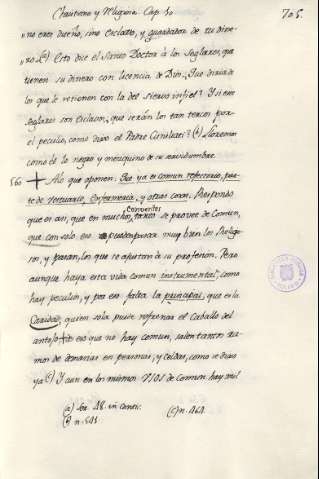 Cap. 5.
705.
no eres dueño, sino esclavo, y guardador de tu dine-
ro. Esto dice el Santo Doctor à los Seglares, que
tienen su dinero con licencia de Dios. Que diria de
los que le retienen con la del siervo infiel? Y si esos
seglares son esclavos, que serán los tan tercos por
el peculio, como dixo el Padre
como de lo negro y mezquino de su servidumbre.
560 + Aló que oponen: Que ya es comun refectorio, par-
te de vestuario, Enfermeria, y otras cosas. Respondo
que es asi, que en muchos conventos se provee de Comun,
que con solo eso muy bien los Religio-
sos, y pasan, los que se ajustan à su profesion. Pero
aunque haya esta vida comun instrumental, como
hay peculios, y por eso falta la principal, que es la
Caridad, quien sola puede refrenar el Caballo del
antojo, eso que no hay comun, salen tantos au-
mos de en personas, y celdas, como se dixo
ya. Y aun en los mismos usos de comun hay mil
(a) Ser. 48.
(b) n. 541.
(c) n. 464.